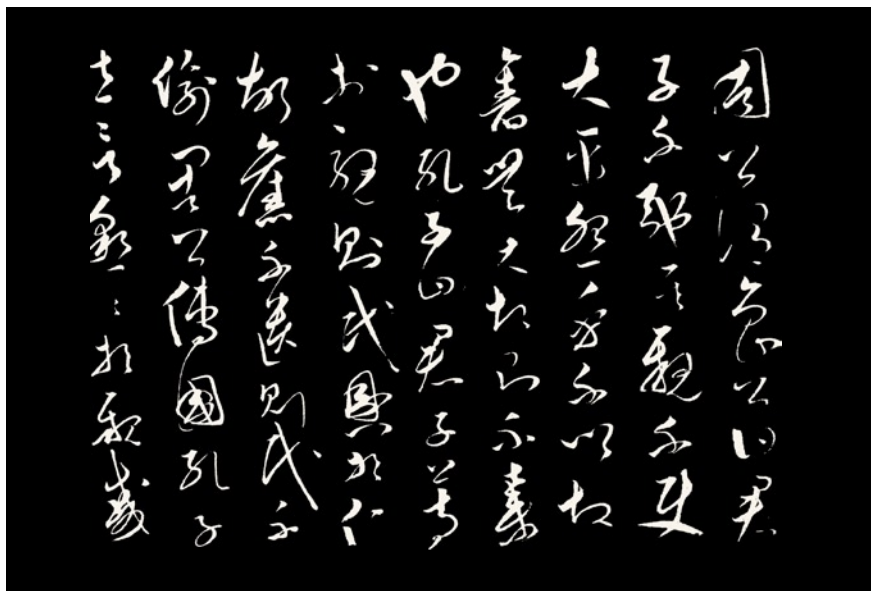 周公謂魯公曰君
子不弛其親不使
大臣怨乎不以故
舊無大故則不棄
也孔子曰君子篤
於親則民興於仁
故舊不遺則民不
偷周公傳國孔子
言於親